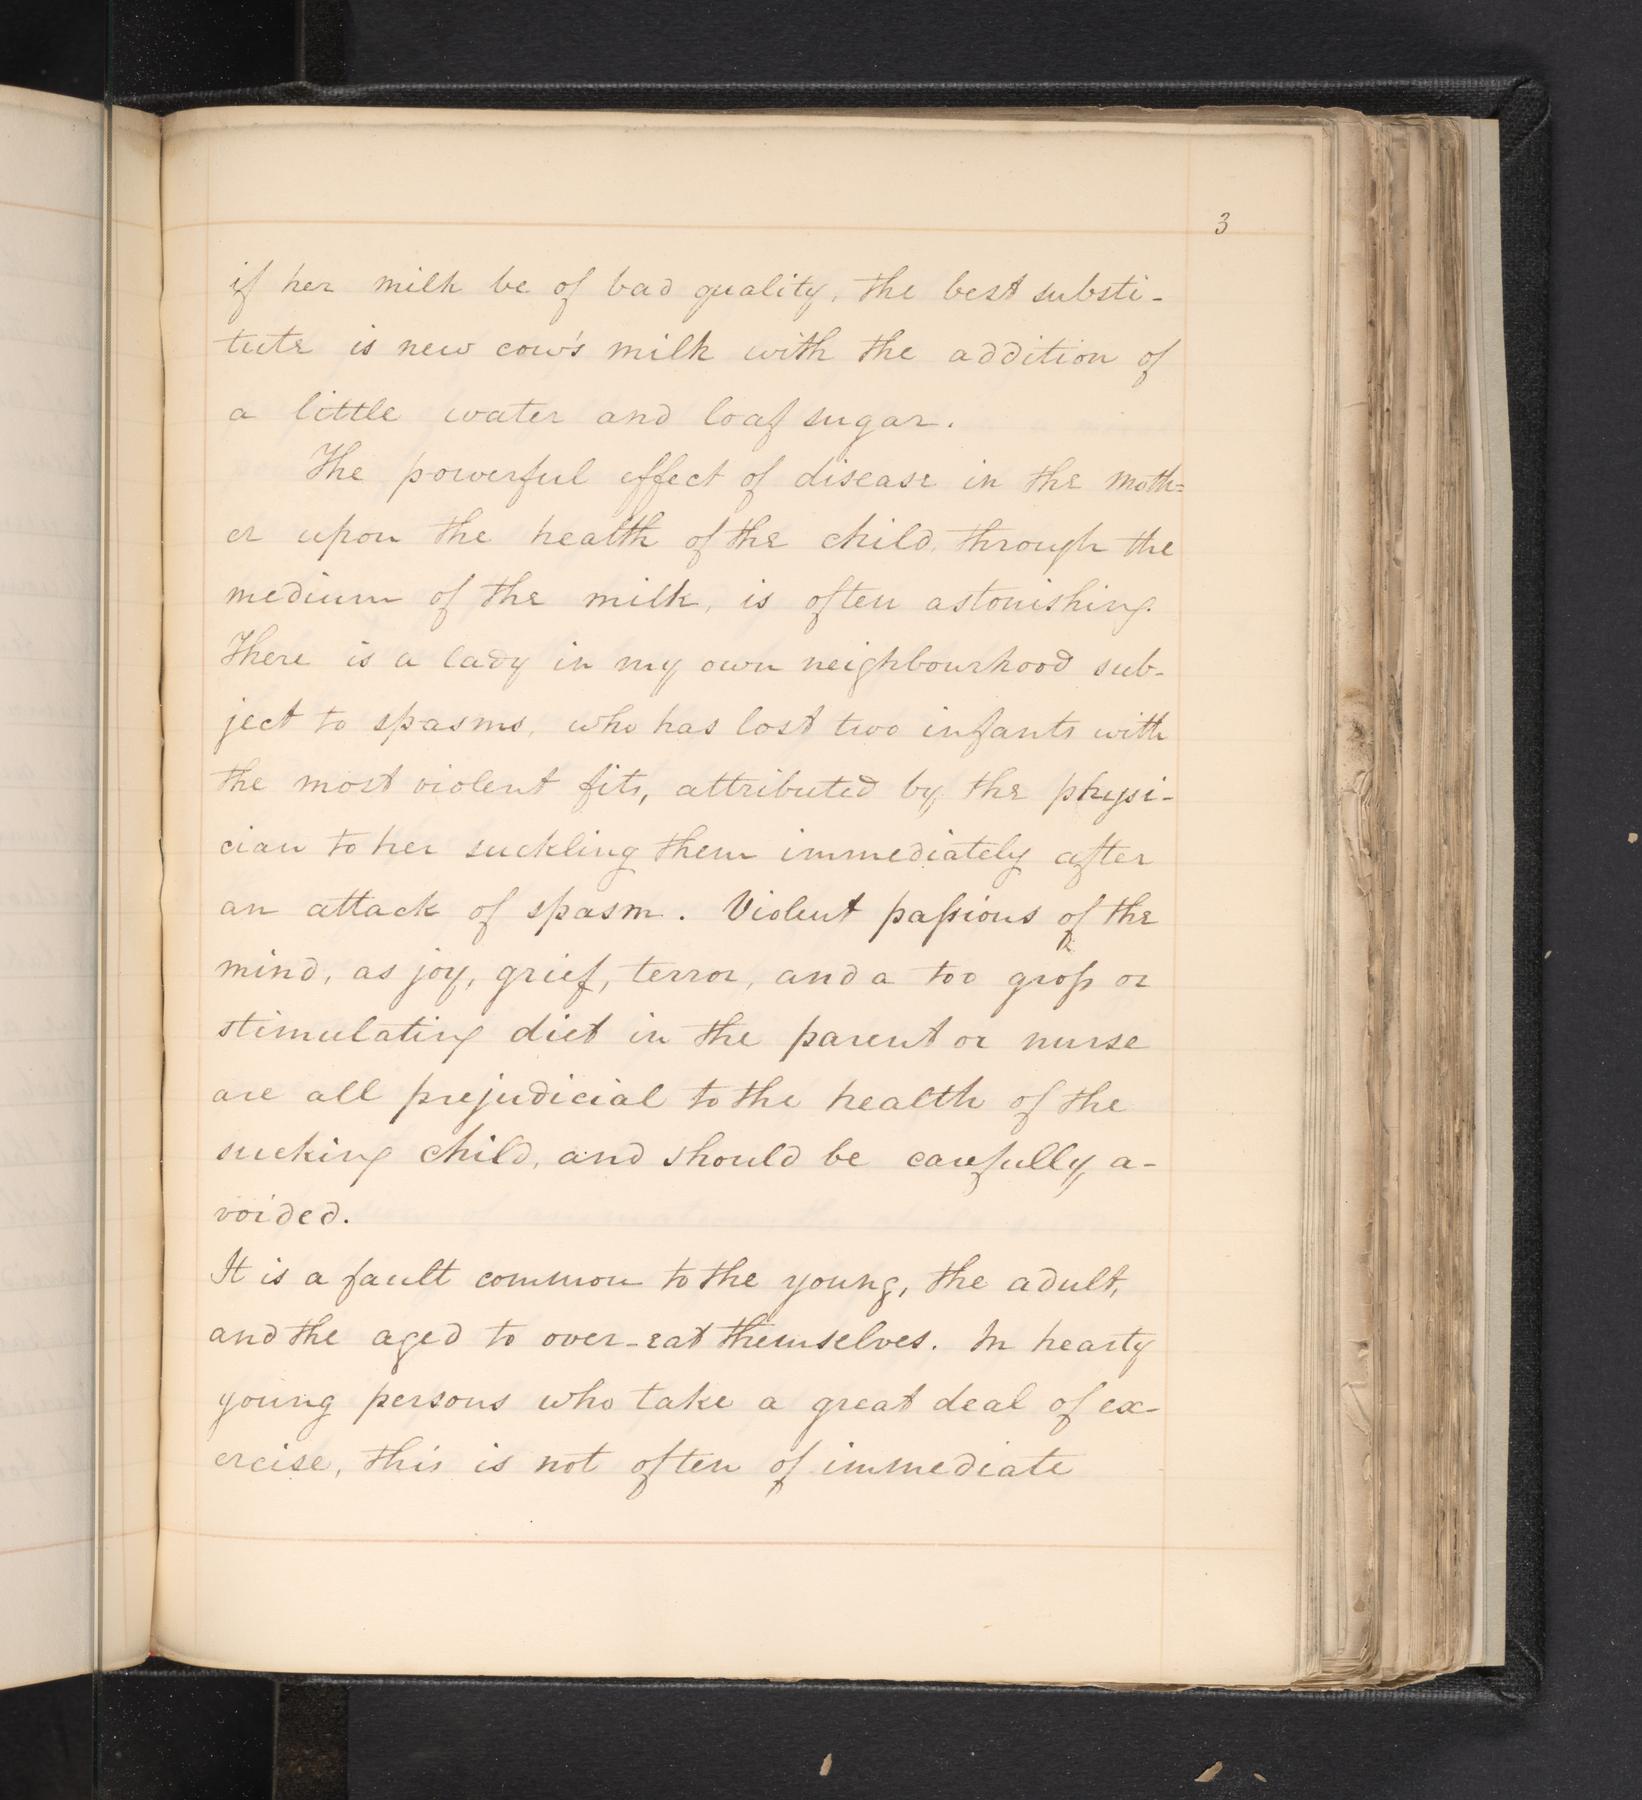 3
if her milk be of bad quality, the best substi-
tute is new cow's milk with the addition of
a little water and loaf sugar.
The powerful effect of disease in the moth=
er upon the health of the child, through the
medium of the milk, is often astonishing.
There is a lady in my own neighbourhood sub-
ject to spasms, who has lost two infants with
the most violent fits, attributed by the physi-
cian to her suckling them immediately after
an attack of spasm. Violent paſsions of the
mind, as joy, grief, terror, and a too groſs or
stimulating diet in the parent or nurse
are all prejudicial to the health of the
sucking child, and should be carefully a-
voided.
It is a fault common to the young, the adult,
and the aged to over-eat themselves. In hearty
young persons who take a great deal of ex-
ercise, this is not often of immediate